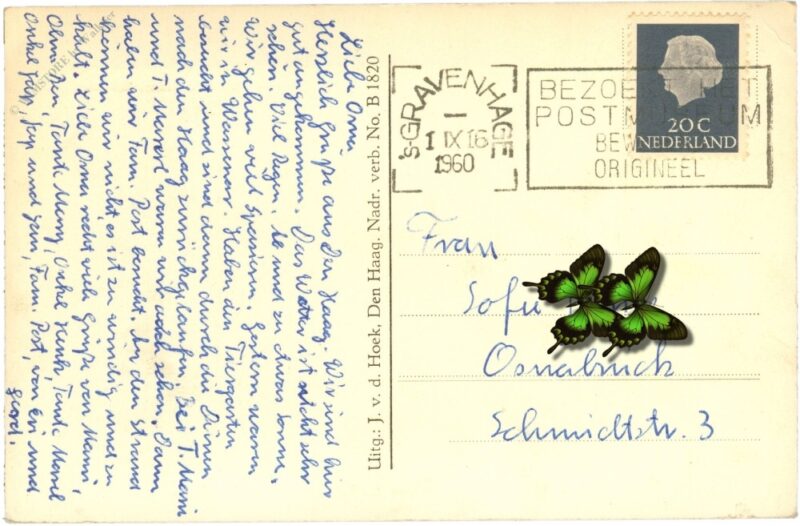 Liebe Oma
Herzlich Grüße aus Den Haag. Wir sind hier
gut angekommen. Das Wetter ist nicht sehr
schön. Viel Regen, ab und zu etwas Sonne.
Wir gehen viel spazieren. Gestern waren
wir in Wassenaar. Haben den Tiergarten
besucht und sind dann durch die Dünen
nach den Haag zurückgelaufen. Bei T.
und T. waren wir auch schon. Dann
haben wir Fam. Post besucht. An den Strand
können wir nicht es ist zu windig und zu
kalt. Liebe Oma recht viele Grüße von Mami,
Tante Onkel Henk, Tante
Onkel Jaap, Jaap und Fam. Post, von Evi und
Gerd.
Uitg.: J. v. d. Hoek, Den Haag. Nadr. verb. No. B 1820
's-GRAVENHAGE
1 IX 16
1960
BEZOEK HET
POSTMUSEUM
ORIGINEEL
20 C
NEDERLAND
Frau
Osnabrück
Schmidtstr. 3